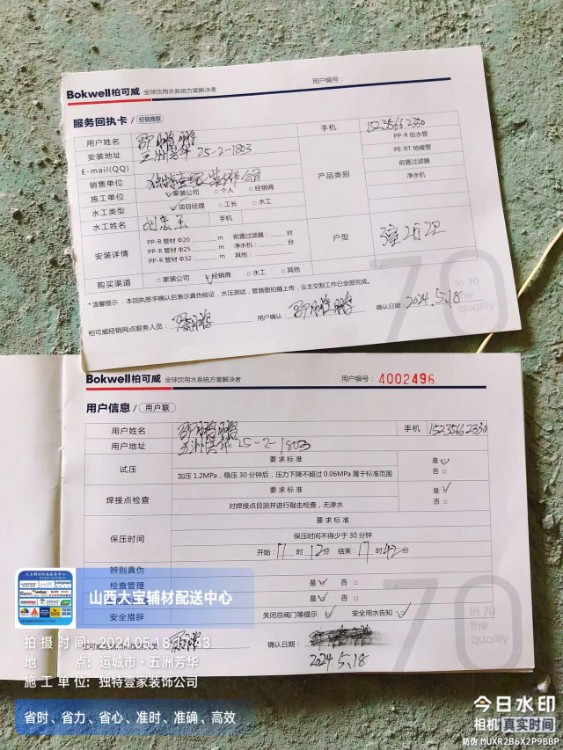 Bokwell柏可威 全球饮用水系统方案解决者
用户编号：
服务回执卡 / 经销商联
用户姓名
手机 15235662330
安装地址 五洲芳华 25-2-1803
E-mail(QQ)
销售单位
产品类别
PP-R 给水管
PE-RT 地暖管
前置过滤器
净水机
施工单位 家装公司 个人 经销商
水工类型 项目经理 工长 水工
水工姓名 手机
安装详情
PP-R 管材 Φ20 m 前置过滤器： 台
PP-R 管材 Φ25 m 净水机： 台
PP-R 管材 Φ32 m 其他：
户型
购买渠道 家装公司 经销商 水工 其他
*温馨提示：本回执签字确认后表示真伪验证、水压测试，管路图拍摄上传，业主交割工作已全部完成。
柏可威经销网点服务人员： 用户确认： 确认日期：2024.5.18
70
in 70
the quality
Bokwell柏可威 全球饮用水系统方案解决者
用户编号：4002496
用户信息 / 用户联
用户姓名
手机 15235662330
用户地址 五洲芳华 25-2-1803
试压
要求标准
加压 1.2MPa，稳压 30 分钟后，压力下降不超过 0.06MPa 属于标准范围
是 否
焊接点检查
要求标准
对焊接点目测并进行敲击检查，无渗水
是 否
保压时间
要求标准
保压时间不得少于 30 分钟
开始：17 时 12 分 结束 17 时 42 分
辨别真伪
检查管理
是 否
是 否
安全措辞 关闭总阀门等提示 安全用水告知
确认日期：
2024.5.18
70
in 70
the quality
山西大宝辅材配送中心
拍摄时间：2024.05.18
地点：运城市·五洲芳华
施工单位：独特壹家装饰公司
省时、省力、省心、准时、准确、高效
今日水印
相机 真实时间
防伪 MUXR2B6X2P9BBP